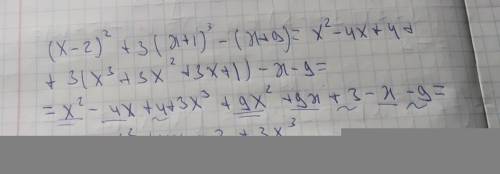 (x-2)² + 3(x+1)³ - (x+9) = x² - 4x + 4 +
+ 3(x³ + 3x² + 3x + 1) - x - 9 =
= x² - 4x + 4 + 3x³ + 9x² + 9x + 3 - x - 9 =
+ 3x³